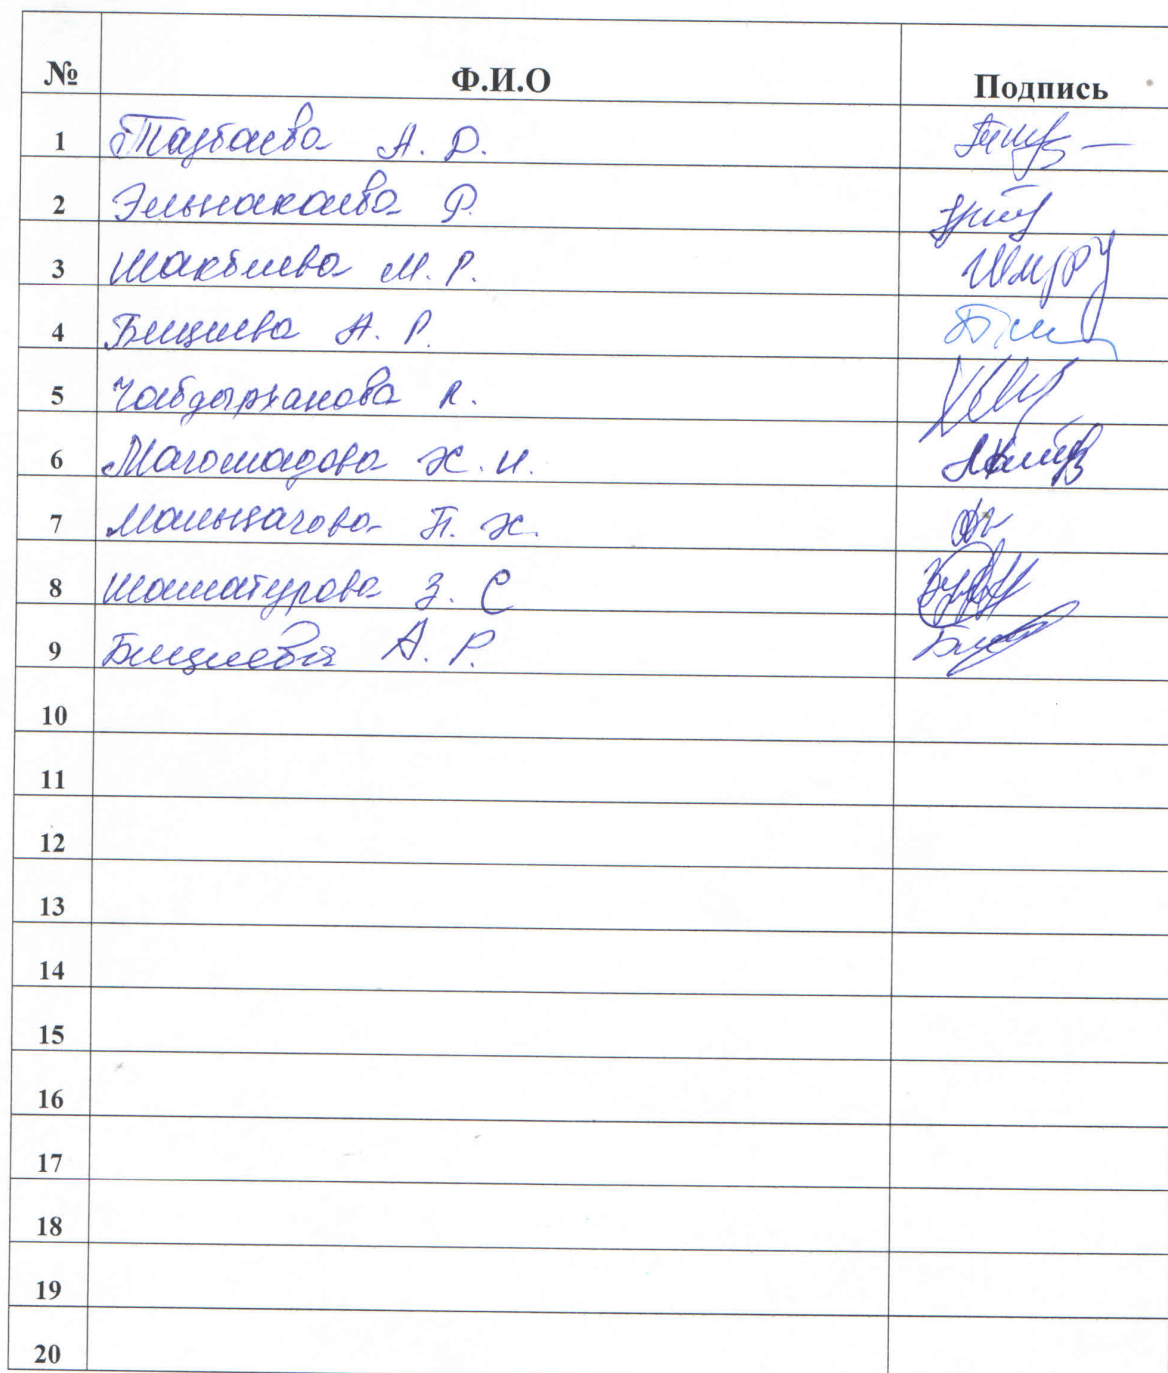 № Ф.И.О Подпись
1 Тазбаева А. Р.
2 Эльнакаева Р.
3 Шакбиева М. Р.
4 Бициева А. Р.
5 Чабдырханова К.
6 Магомадова Ж. И.
7 Мальцагова П. Ж.
8 Шаматурова З. С
9 Бициева А. Р.
10
11
12
13
14
15
16
17
18
19
20